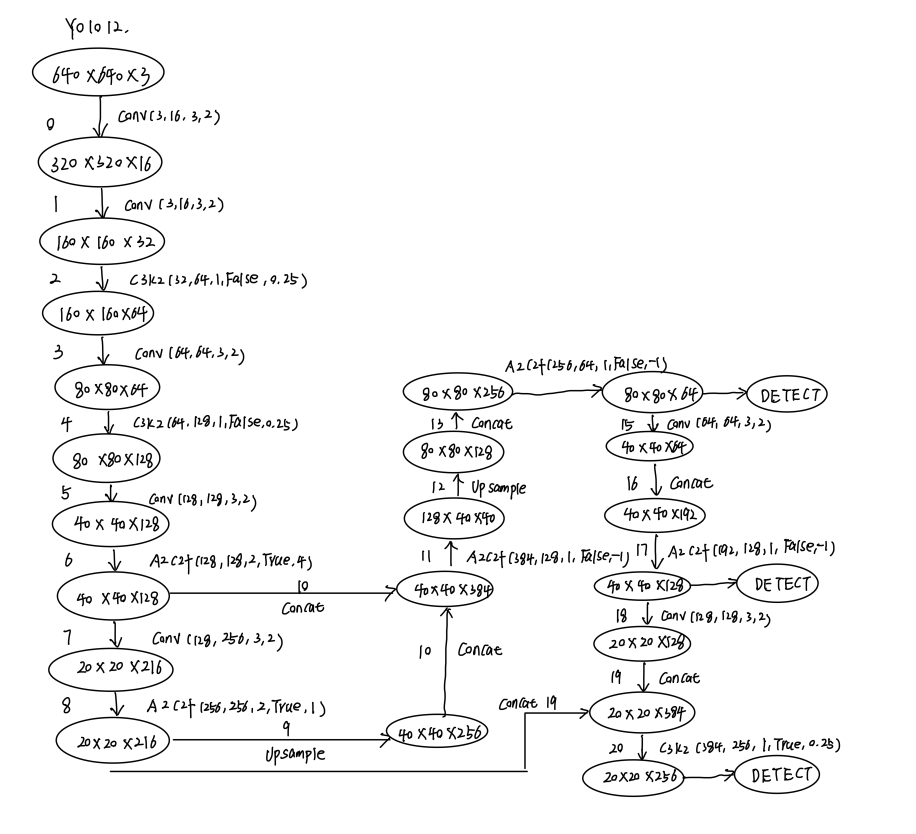 Yolo12.
640×640×3
0 Conv(3,16,3,2)
320×320×16
1 Conv(3,16,3,2)
160×160×32
2 C3k2(32,64,1,False,0.25)
160×160×64
3 Conv(64,64,3,2)
80×80×64
4 C3k2(64,128,1,False,0.25)
80×80×128
5 Conv(128,128,3,2)
40×40×128
6 A2C2f(128,128,2,True,4)
40×40×128
7 Conv(128,256,3,2)
20×20×216
8 A2C2f(256,256,2,True,1)
20×20×216
9
Upsample
40×40×256
10 Concat
10
Concat
40×40×384
11 A2C2f(384,128,1,False,-1)
128×40×40
12 Upsample
80×80×128
13 Concat
80×80×256
A2C2f(256,64,1,False,-1)
80×80×64
DETECT
15 Conv(64,64,3,2)
40×40×64
16 Concat
40×40×192
17 A2C2f(192,128,1,False,-1)
40×40×128
DETECT
18 Conv(128,128,3,2)
20×20×128
19 Concat
Concat 19
20×20×384
20 C3k2(384,256,1,True,0.25)
20×20×256
DETECT